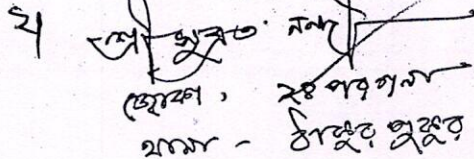 ২। শ্রী সুব্রত নন্দী
জোকা, ২৪ পরগনা
থানা - ঠাকুর পুকুর